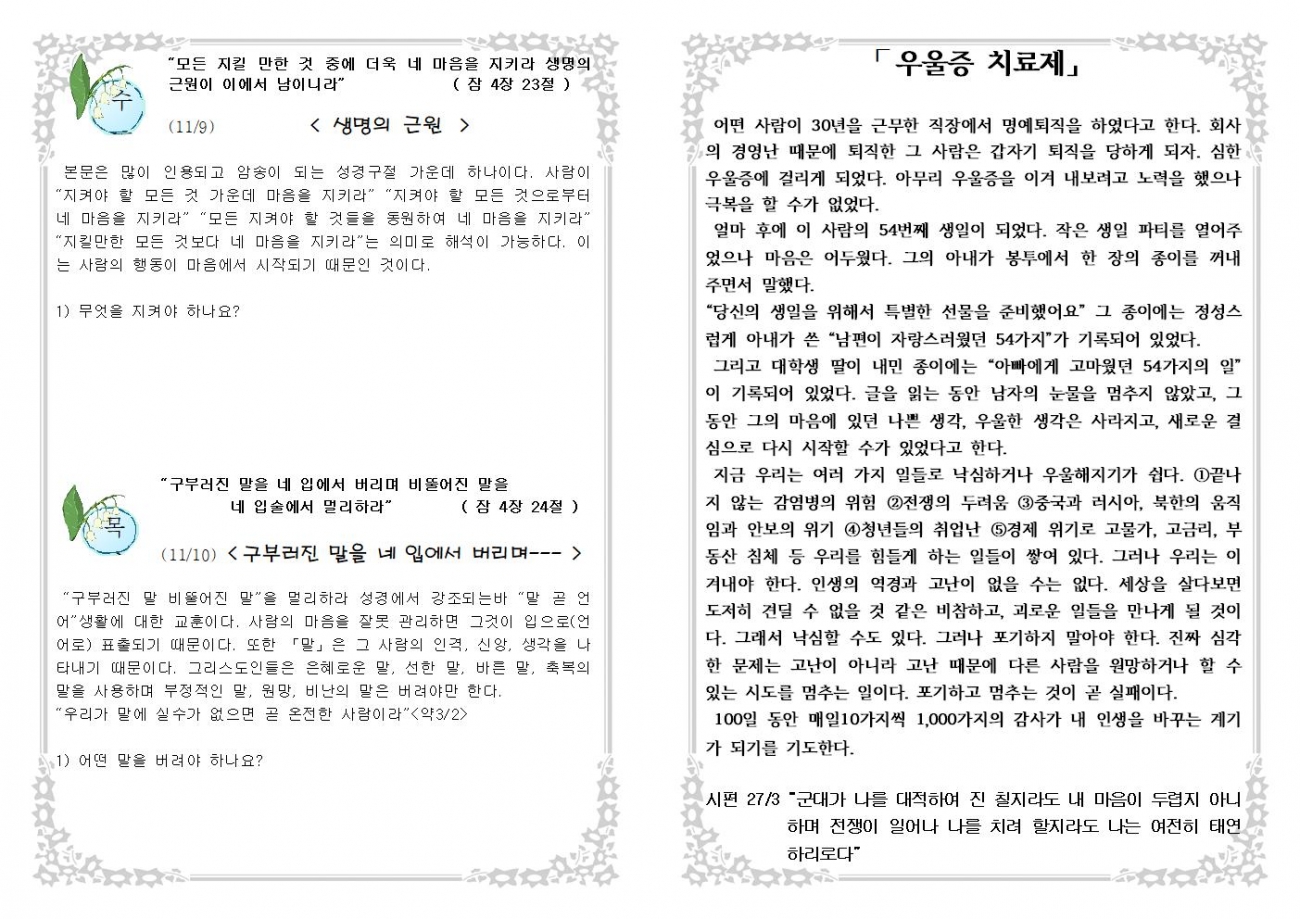 “모든 지킬 만한 것 중에 더욱 네 마음을 지키라 생명의
근원이 이에서 남이니라” ( 잠 4장 23절 )
수
(11/9) < 생명의 근원 >
본문은 많이 인용되고 암송이 되는 성경구절 가운데 하나이다. 사람이
“지켜야 할 모든 것 가운데 마음을 지키라” “지켜야 할 모든 것으로부터
네 마음을 지키라” “모든 지켜야 할 것들을 동원하여 네 마음을 지키라”
“지킬만한 모든 것보다 네 마음을 지키라”는 의미로 해석이 가능하다. 이
는 사람의 행동이 마음에서 시작되기 때문인 것이다.
1) 무엇을 지켜야 하나요?
“구부러진 말을 네 입에서 버리며 비뚤어진 말을
네 입술에서 멀리하라” ( 잠 4장 24절 )
목
(11/10) < 구부러진 말을 네 입에서 버리며--- >
“구부러진 말 비뚤어진 말”을 멀리하라 성경에서 강조되는바 “말 곧 언
어”생활에 대한 교훈이다. 사람의 마음을 잘못 관리하면 그것이 입으로(언
어로) 표출되기 때문이다. 또한 「말」은 그 사람의 인격, 신앙, 생각을 나
타내기 때문이다. 그리스도인들은 은혜로운 말, 선한 말, 바른 말, 축복의
말을 사용하며 부정적인 말, 원망, 비난의 말은 버려야만 한다.
“우리가 말에 실수가 없으면 곧 온전한 사람이라”<약3/2>
1) 어떤 말을 버려야 하나요?
「우울증 치료제」
어떤 사람이 30년을 근무한 직장에서 명예퇴직을 하였다고 한다. 회사
의 경영난 때문에 퇴직한 그 사람은 갑자기 퇴직을 당하게 되자. 심한
우울증에 걸리게 되었다. 아무리 우울증을 이겨 내보려고 노력을 했으나
극복을 할 수가 없었다.
얼마 후에 이 사람의 54번째 생일이 되었다. 작은 생일 파티를 열어주
었으나 마음은 어두웠다. 그의 아내가 봉투에서 한 장의 종이를 꺼내
주면서 말했다.
“당신의 생일을 위해서 특별한 선물을 준비했어요” 그 종이에는 정성스
럽게 아내가 쓴 “남편이 자랑스러웠던 54가지”가 기록되어 있었다.
그리고 대학생 딸이 내민 종이에는 “아빠에게 고마웠던 54가지의 일”
이 기록되어 있었다. 글을 읽는 동안 남자의 눈물을 멈추지 않았고, 그
동안 그의 마음에 있던 나쁜 생각, 우울한 생각은 사라지고, 새로운 결
심으로 다시 시작할 수가 있었다고 한다.
지금 우리는 여러 가지 일들로 낙심하거나 우울해지기가 쉽다. ①끝나
지 않는 감염병의 위험 ②전쟁의 두려움 ③중국과 러시아, 북한의 움직
임과 안보의 위기 ④청년들의 취업난 ⑤경제 위기로 고물가, 고금리, 부
동산 침체 등 우리를 힘들게 하는 일들이 쌓여 있다. 그러나 우리는 이
겨내야 한다. 인생의 역경과 고난이 없을 수는 없다. 세상을 살다보면
도저히 견딜 수 없을 것 같은 비참하고, 괴로운 일들을 만나게 될 것이
다. 그래서 낙심할 수도 있다. 그러나 포기하지 말아야 한다. 진짜 심각
한 문제는 고난이 아니라 고난 때문에 다른 사람을 원망하거나 할 수
있는 시도를 멈추는 일이다. 포기하고 멈추는 것이 곧 실패이다.
100일 동안 매일10가지씩 1,000가지의 감사가 내 인생을 바꾸는 계기
가 되기를 기도한다.
시편 27/3 “군대가 나를 대적하여 진 칠지라도 내 마음이 두렵지 아니
하며 전쟁이 일어나 나를 치려 할지라도 나는 여전히 태연
하리로다”